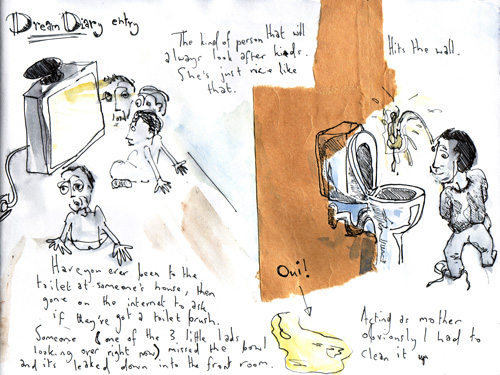 Dream Diary entry
The kind of person that will
always look after kids.
She's just nice like
that.
Hits the wall.
Have you ever been to the
toilet at someone's house, then
gone on the internet to ask
if they've got a toilet brush.
Someone (one of the 3 little lads
looking over right now) missed the bowl
and it's leaked down into the front room.
Oui!
Acting as mother
obviously I had to
clean it up